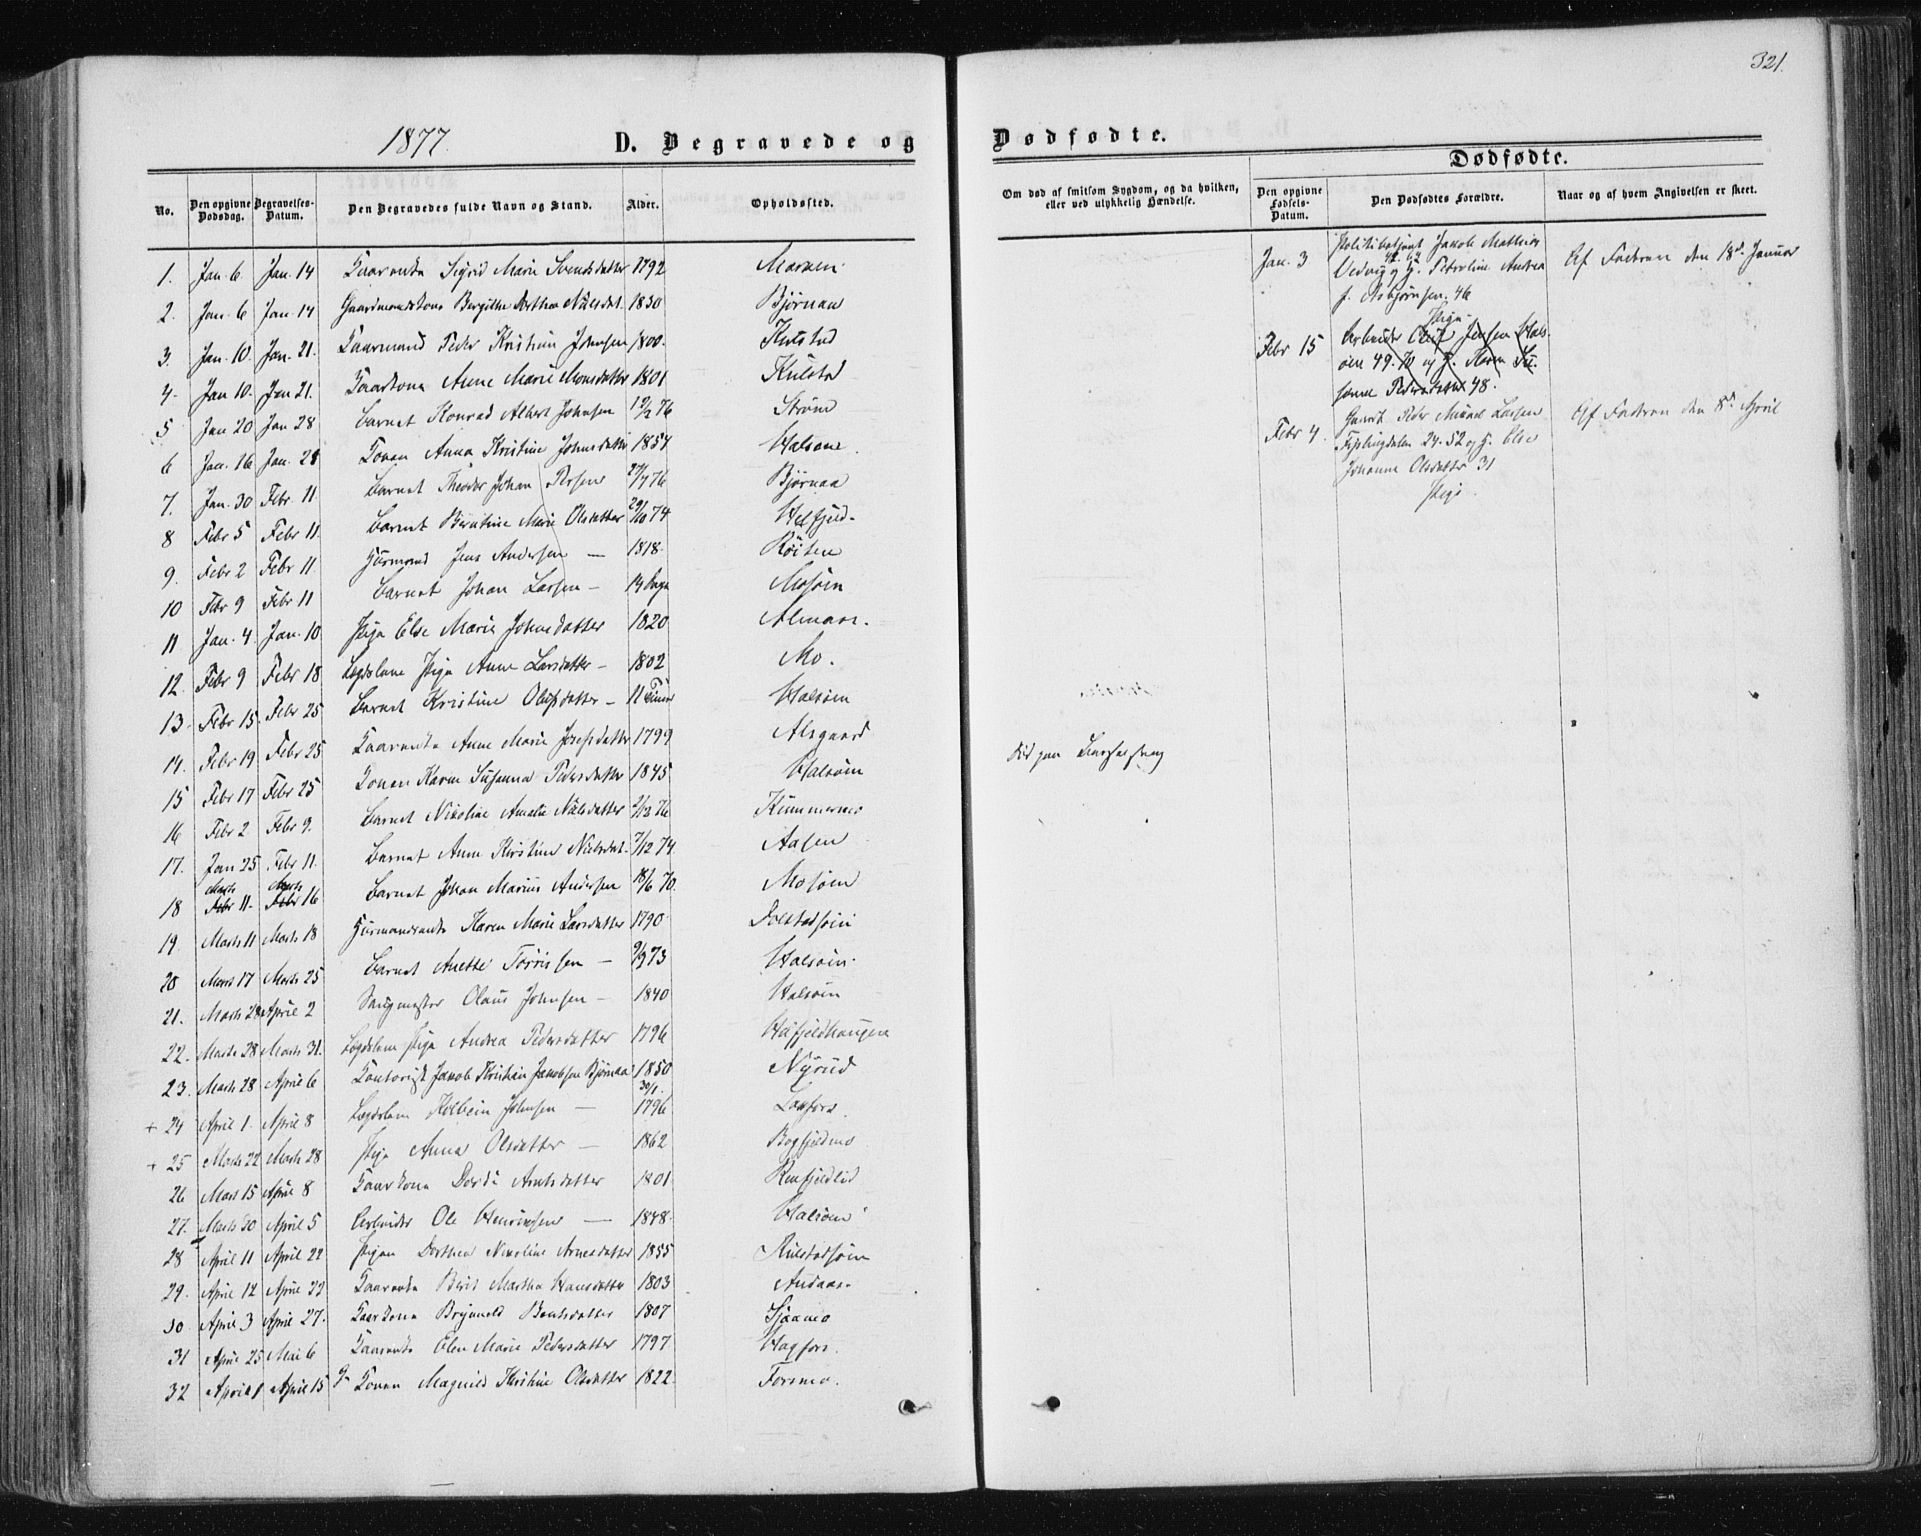 321.
1877. D. Begravede og Dødfødte.
Dødfødte.
No. Den opgivne Dødsdag. Begravelses-Datum. Den Begravedes fulde Navn og Stand. Alder. Opholdssted.
Om død af smitsom Sygdom, og da hvilken, eller ved ulykkelig Hændelse. Den opgivne Fødsels-Datum. Den Dødfødtes Forældre. Naar og af hvem Angivelsen er skeet.
1. Jan. 6 Jan. 14 Kaarenke Sigrid Marie Svendsdatter 1792
2. Jan. 6 Jan. 14 Gaardmandskone Bergithe Dorthea Nilsdat. 1830 Bjørnaa
3. Jan. 10. Jan. 21. Kaarmand Peder Kristian Johnsen 1800. Kulstad
4. Jan 10. Jan 21. Kaarkone Anne Marie Monsdatter 1801 Kulstad
5 Jan 20 Jan 28 Barnet Konrad Albert Johnsen 76 Strøm
6 Jan. 16 Jan. 28 Konen Anna Kristine Johnsdatter 1854 Halsøen.
7. Jan. 30 Febr. 11 Barnet Theodor Johan 76 Bjørnaa
8 Febr 5 Febr 11. Barnet Berntine Marie Olsdatter 29/10 74
9. Febr 2 Febr 11. Huusmand Jens Andersen — 1818. Røiten
10 Febr 9 Febr 11 Barnet Johan Larsen — 14 Dage Mosøen
11 Jan. 4. Jan. 10 Pige Else Marie Johnsdatter 1820
12. Febr 9 Febr 18 Lægdslem Pige Anne Larsdatter — 1802 Mo.
13. Febr 15. Febr 25 Barnet Kristine Olufsdatter — 11 Timer Halsøen
14. Febr 19 Febr 25 Kaarenke Anne Marie Josefsdatter 1799 Alsgaard
15 Febr 17 Febr 25 Konen Karen Susanna Pedersdatter 1845 Halsøen Død paa Barselseng
16 Febr 2 Febr 9. Barnet Nikoline Amalie Nilsdatter 2/12 76
17. Jan 25 Febr 11. Barnet Anne Kirstine Nielsdat. 7/12 74. Aasen
18 Marts 11. Marts 16 Barnet Johan Marius Andersen 18/6 70. Mosøen
19. Marts 11 Marts 18 Huusmandsenke Karen Marie Larsdatter 1790 Dolstadsøen
20 Marts 17 Marts 25 Barnet Anette Tørrissen — 73 Halsøen.
21. Marts 28 April 2 Olaus Johnsen — 1840 Halsøen
22. Marts 28 Marts 31. Lægdslem Pige Andrea Pedersdatter 1796
23. Marts 28 April 6 Kontorist Jakob Kristian Jakobsen Bjørnaa 1850 30/1. Nyrud
+ 24 April 1. April 8 Lægdslem Kolbein Johnsen — 1796 Laxfors.
+ 25 Marts 22 Marts 28 Pige Anna Olsdatter — 1862
26 Marts 15 April 8 Kaarkone Dordi Arntsdatter 1801
27. Marts 30 April 5 Arbeider Ole Henriksen — 1848. Halsøen
28 April 11 April 22 Pigen Dorthea Nikoline Arnesdatter 1855 Kulstadsøen
29. April 12 April 22 Kaarenke Berit Martha Hansdatter 1803
30. April 3 April 27. Kaarkone Brynhild Bentsdatter 1807 Sjaamo
31 April 25 Mai 6 Kaarenke Elen Marie Pedersdatter 1797 Hagfors.
32 April 1 April 15 Konen Magnild Kristine Olsdatter 1822. Forsmo.
Jan. 3 Politibetjent Jakob Mathias Vedvig og H. Petroline Andrea f. Asbjørnsen. 46 Af Faderen den 18d. Januar
Febr 15 Pige. Arbeider Oluf Jensen Halsøen 49. 70 og H. Karen Susanne Pedersdatter 48.
Febr 4. Gaardb. Peder Mikael Larsen 24. 52 og H. Else Johanna Olsdatter 31 Af Faderen den 8d. April
Pige.